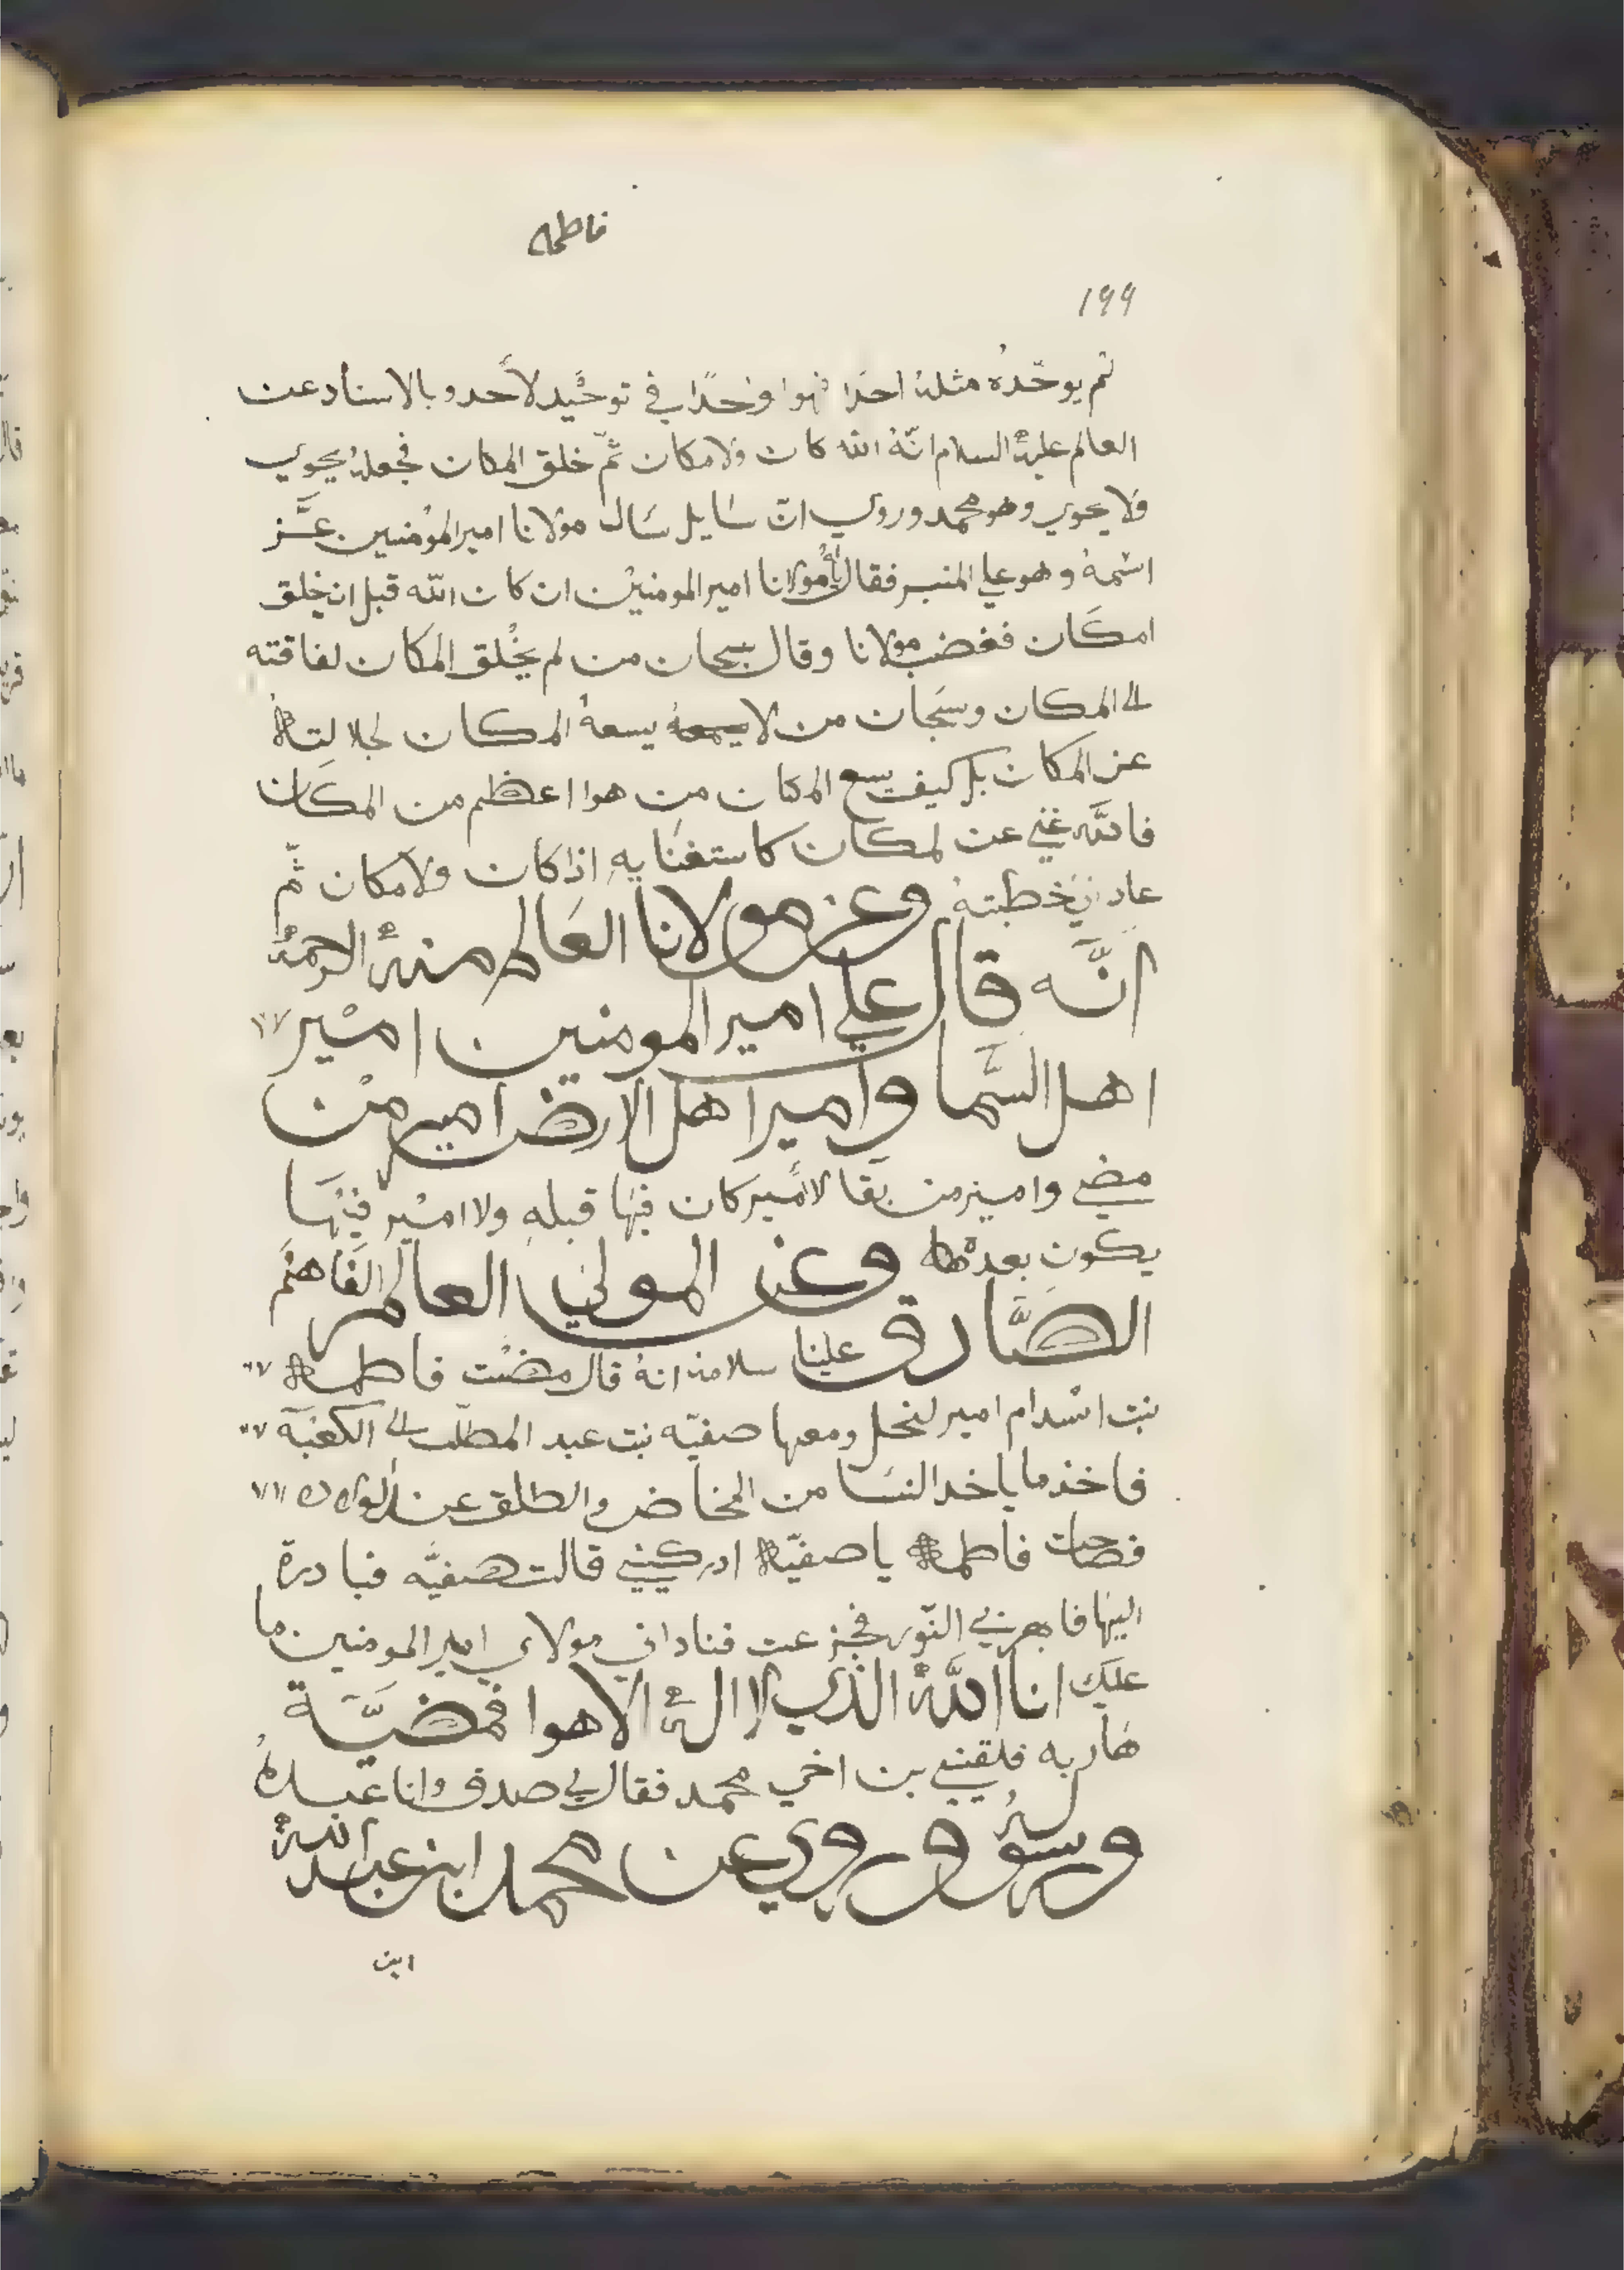 فاطمه
١٩٩
لم يوحّده مثله احدًا فهوا وحدًا في توحّيد لأحد و بالاسناد عن
العالم عليه السلام انّهُ الله كان ولا مكان ثمّ خلق المكان فجعله يحوي
فلا يحوي وهو محمد وروي انّ سَايل سَال مولانا امير المؤمنيين عَّز
اسْمهُ وهو علي المنبر فقال يا مولانا امير المومنيْن ان كان الله قبل ان يخلق
امكان فغضب مولانا وقال سبحان من لم يخْلق المكان لفاقته
الى المكان وسَبحان من لا يسعهُ المكان لجلالتهُ
عن المكان بل كيف يسع المكان من هوا اعظم من المكان
فاللّه غني عن لمكان كاستغنايه اذا كان ولا مكان ثّم
عاد في خطبتهُ وعن مولانا العَالم منهُ الرحمهُ
انَّه قال علي امير المومنين امْير
اهل السَّما وامير اهل الارض امير منْ
مضي وامير من بَقا لا أمْير كان فيْها قبله ولا امْير فيْهَا
يكون بعدهُ وعن المولىٰ العالم الفَاهمْ
الصَّادق علينا سلامهُ انهُ قال مضْت فاطمه
بنت اسْد ام امير لنحل ومعها صفيّه بنت عبد المطّلب الى الكعْبَه
فاخذ ما ياخد النسَا من المخاض والطلق عند الولاده
فصاحت فاطمه يا صفيّه ادركيني قالت صفيَّه فبادرة
اليهْا فابهرني النّور فجزعت فناداني مولاي امير المومنين ما
عليَك انا اللَّهُ الذي لا الهُ الاهوا فمضيَّة
هَاربه فلقيني بن اخي محمد فقال لي صدق وانا عبدهُ
ورسولهُ وروي عن محمد ابن عبد اللهُ
ابن